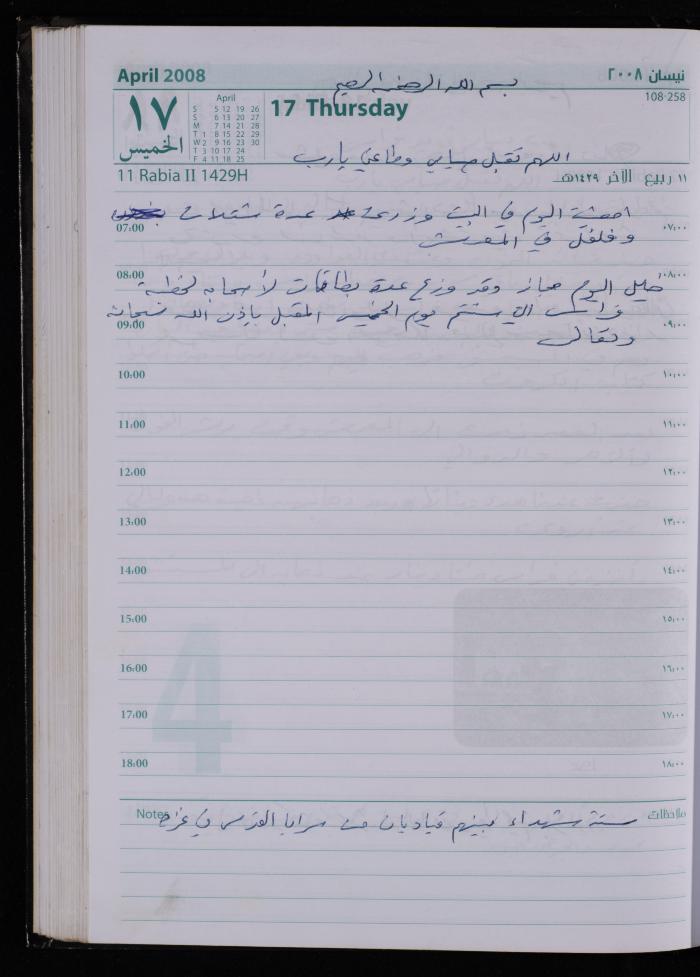 April 2008
نيسان ٢٠٠٨
بسم الله الرحمن الرحيم
108-258
١٧
الخميس
April
S 5 12 19 26
S 6 13 20 27
M 7 14 21 28
T 1 8 15 22 29
W 2 9 16 23 30
T 3 10 17 24
F 4 11 18 25
17 Thursday
اللهم تقبل صيامي وطاعتي يارب
11 Rabia II 1429H
١١ ربيع الآخر ١٤٢٩هـ
اليوم في البيت وزرعت عدة شتلات
07:00 ٠٧:٠٠
وفلفل في
08:00 ٠٨:٠٠
اليوم وقد وزع عدة بطاقات لأصحابه لخطبة
فراس التي ستتم يوم الخميس المقبل بإذن الله سبحانه
09:00 ٠٩:٠٠
وتعالى
10:00 ١٠:٠٠
11:00 ١١:٠٠
12:00 ١٢:٠٠
13:00 ١٣:٠٠
14:00 ١٤:٠٠
15:00 ١٥:٠٠
16:00 ١٦:٠٠
17:00 ١٧:٠٠
18:00 ١٨:٠٠
4
Notes ملاحظات
ستة شهداء بينهم قياديان من سرايا القدس في غزة